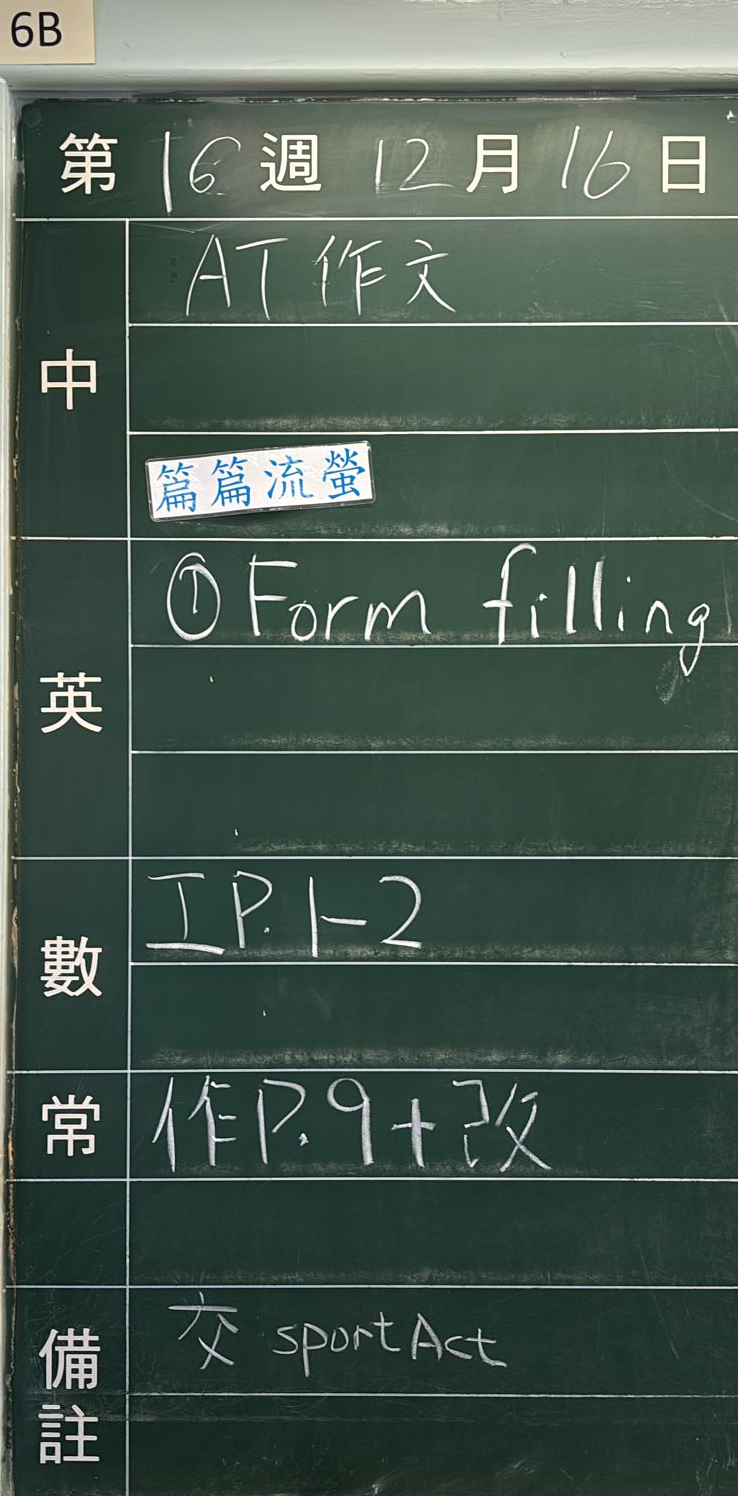 6B
第 16 週 12 月 16 日
中
AT 作文
篇篇流螢
英
① Form filling
數
工 P. 1-2
常
作 P. 9 + 改
備註
交 sport Act